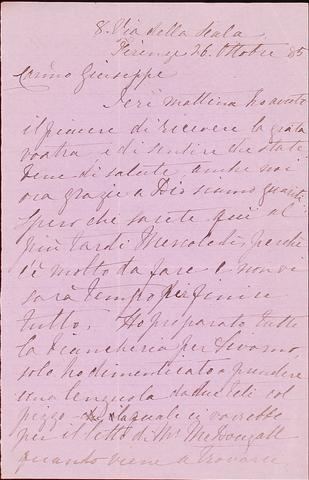 8. Via della Scala
Firenze 26. Ottobre 85
Carmo Giuseppe
Ieri mattina ho avuto
il piacere di ricevere la grata
vostra e di sentire che state
bene di salute, anche noi
ora grazie a Dio siamo guariti
Spero che sarete qui al
più tardi Mercoledì, perchè
c'è molto da fare e non vi
sarà tempo per finire
tutto. Ho preparato tutto
la biancheria per Livorno,
solo ho dimenticato a prendere
una lenzuola da due teli col
pizzo la quale ci vorrebbe
per il letto di Mr McDougall
quando viene a trovarci